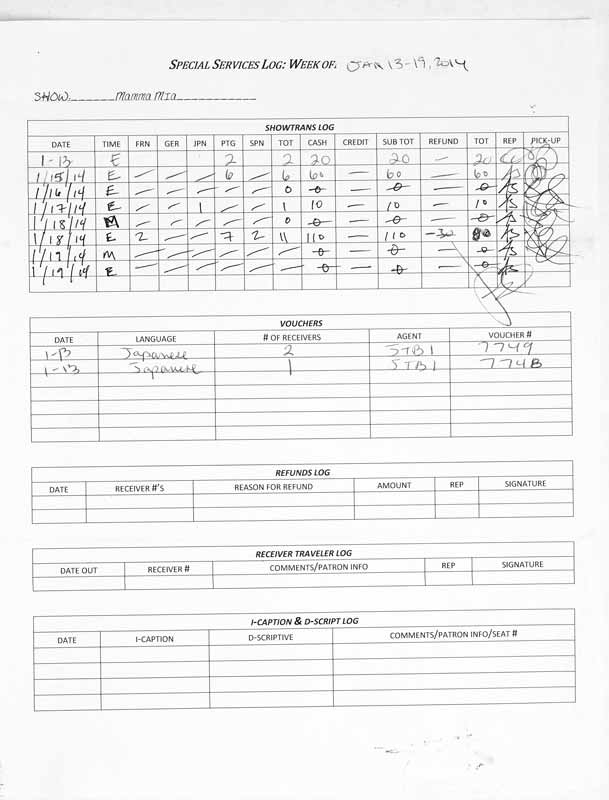 SPECIAL SERVICES LOG: WEEK OF: JAN 13-19, 2014
SHOW: Mamma Mia
SHOWTRANS LOG
DATE TIME FRN GER JPN PTG SPN TOT CASH CREDIT SUB TOT REFUND TOT REP PICK-UP
1-13 E 2 2 20 20 — 20
1/15/14 E — — — 6 — 6 60 — 60 — 60 JB
1/16/14 E — — — — — 0 0 — 0 — 0 JB
1/17/14 E — — 1 — — 1 10 — 10 — 10 JB
1/18/14 M — — — — — 0 0 — 0 — 0 JB
1/18/14 E 2 — — 7 2 11 110 — 110 -30 80 JB
1/19/14 M — — — — — — 0 — 0 — 0 JB
1/19/14 E — — — — — — 0 — 0 — 0 JB
VOUCHERS
DATE LANGUAGE # OF RECEIVERS AGENT VOUCHER #
1-13 Japanese 2 JTB1 7749
1-13 Japanese 1 JTB1 7748
REFUNDS LOG
DATE RECEIVER #'S REASON FOR REFUND AMOUNT REP SIGNATURE
RECEIVER TRAVELER LOG
DATE OUT RECEIVER # COMMENTS/PATRON INFO REP SIGNATURE
I-CAPTION & D-SCRIPT LOG
DATE I-CAPTION D-SCRIPTIVE COMMENTS/PATRON INFO/SEAT #